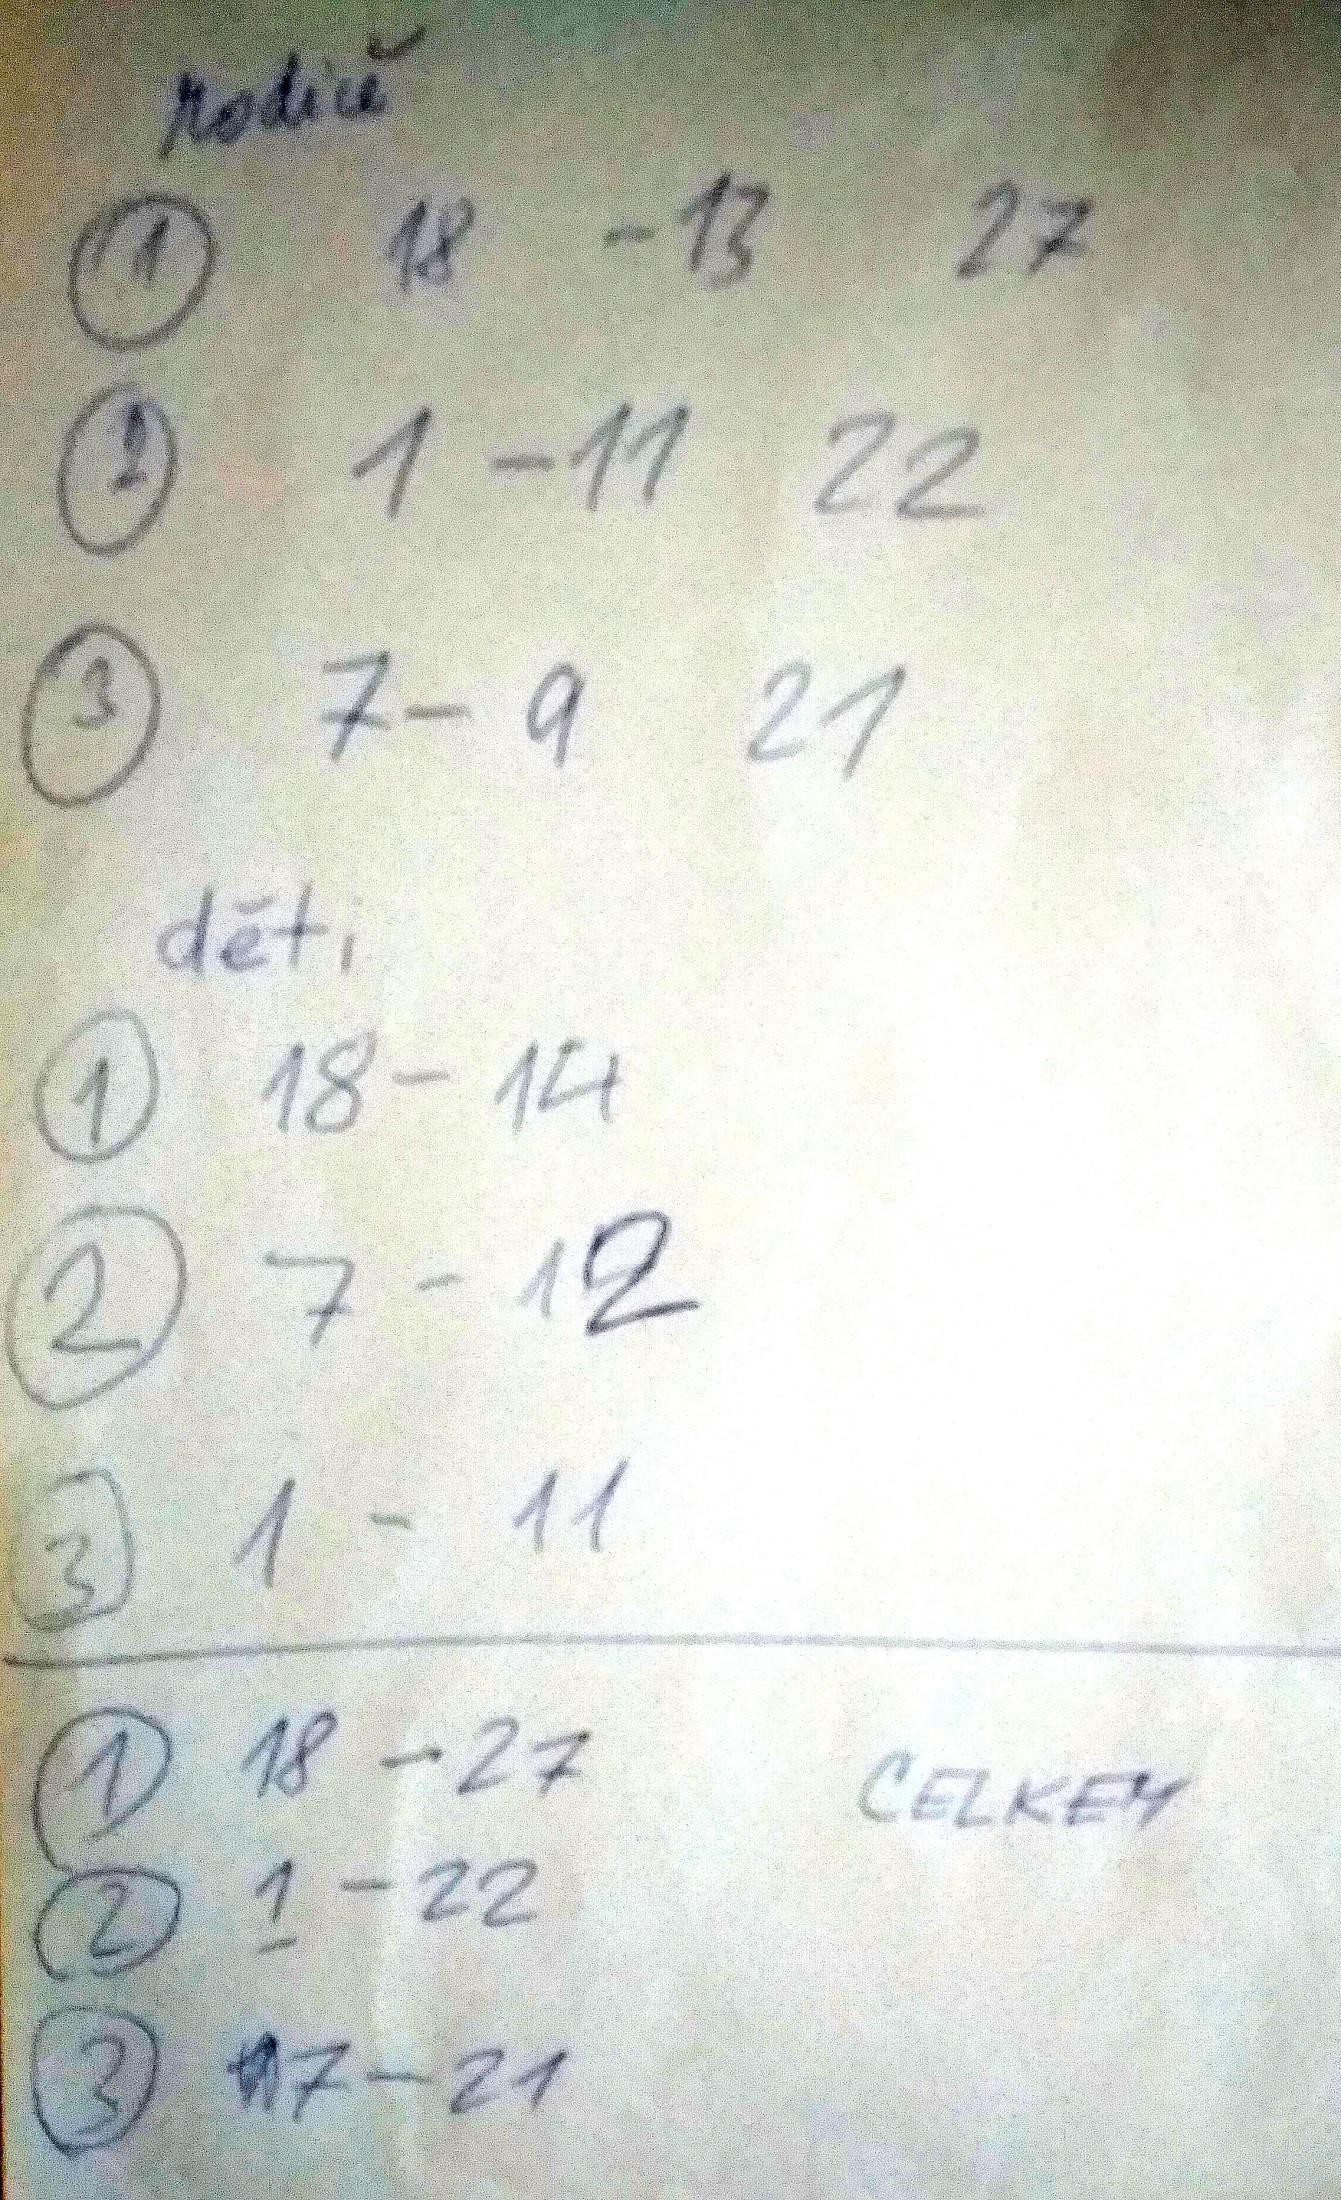 rodiče
1 18 - 13 27
2 1 - 11 22
3 7 - 9 21
děti
1 18 - 14
2 7 - 12
3 1 - 11
1 18 - 27
CELKEM
2 1 - 22
3 7 - 21